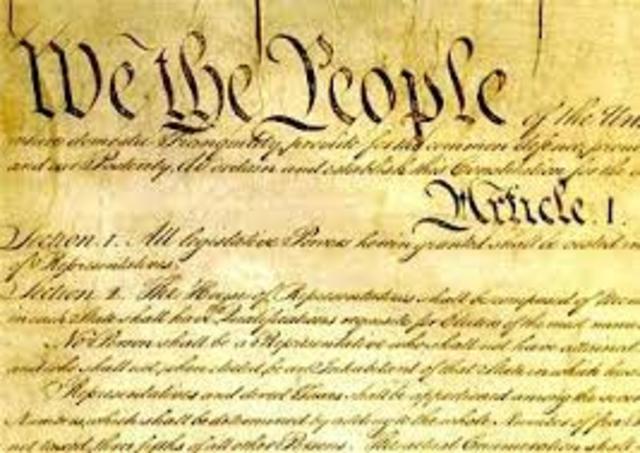 We the People of the Un
domestic Tranquility, provide for the common defence,
and our Posterity, do ordain and establish this Constitution for the
Article. I.
Section. 1. All legislative Powers herein granted shall be vested
of Representatives.
Section. 2. The House of Representatives shall be composed of
in each State shall have Qualifications requisite for Electors of the most
No Person shall be a Representative who shall not have attained
and who shall not, when elected, be an Inhabitant of that State in which
Representatives and direct Taxes shall be apportioned among the several
Numbers, which shall be determined by adding to the whole Number of free
not taxed, three fifths of all other Persons. The actual Enumeration shall